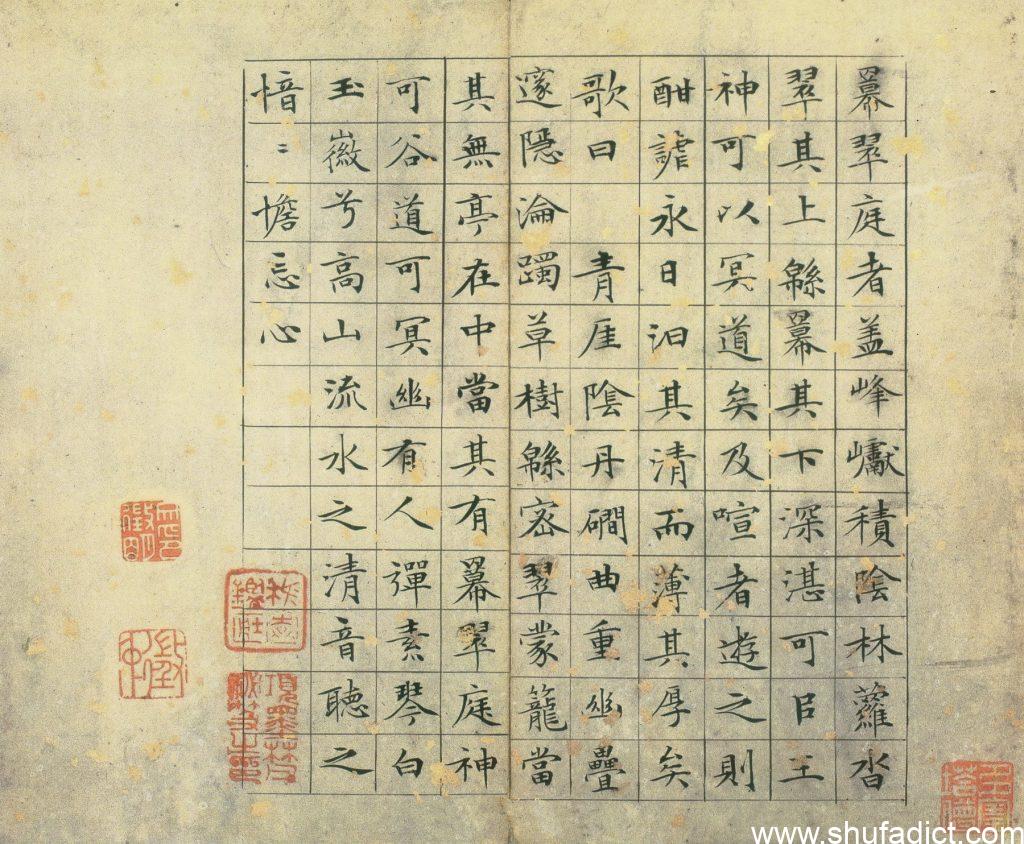 羃翠庭者盖峰巘積陰林蘿沓
翠其上緜羃其下深湛可㠯王
神可以冥道矣及喧者遊之則
酣謔永日汩其清而薄其厚矣
歌曰　青厓陰丹磵曲重幽疊
邃隱淪躅草樹緜密翠蒙籠當
其無亭在中當其有羃翠庭神
可谷道可冥幽有人彈素琴白
玉徽兮高山流水之清音聽之
愔〻憺忘心
項墨林父
秘笈之印
www.shufadict.com